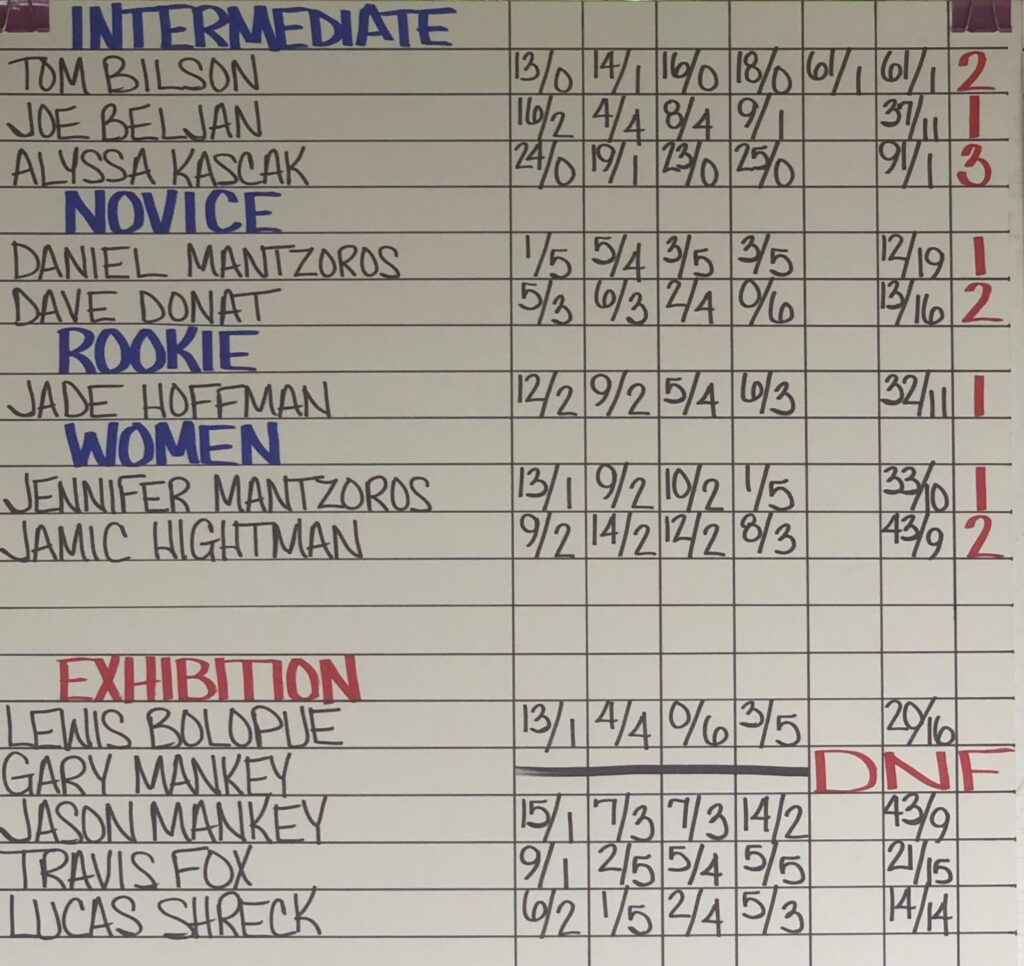 INTERMEDIATE
TOM BILSON 13/0 14/1 16/0 18/0 61/1 61/1 2
JOE BELJAN 16/2 4/4 8/4 9/1 37/11 1
ALYSSA KASCAK 24/0 19/1 23/0 25/0 91/1 3
NOVICE
DANIEL MANTZOROS 1/5 5/4 3/5 3/5 12/19 1
DAVE DONAT 5/3 6/3 2/4 0/6 13/16 2
ROOKIE
JADE HOFFMAN 12/2 9/2 5/4 6/3 32/11 1
WOMEN
JENNIFER MANTZOROS 13/1 9/2 10/2 1/5 33/10 1
JAMIC HIGHTMAN 9/2 14/2 12/2 8/3 43/9 2
EXHIBITION
LEWIS BOLOPUE 13/1 4/4 0/6 3/5 20/16
GARY MANKEY DNF
JASON MANKEY 15/1 7/3 7/3 14/2 43/9
TRAVIS FOX 9/1 2/5 5/4 5/5 21/15
LUCAS SHRECK 6/2 1/5 2/4 5/3 14/14